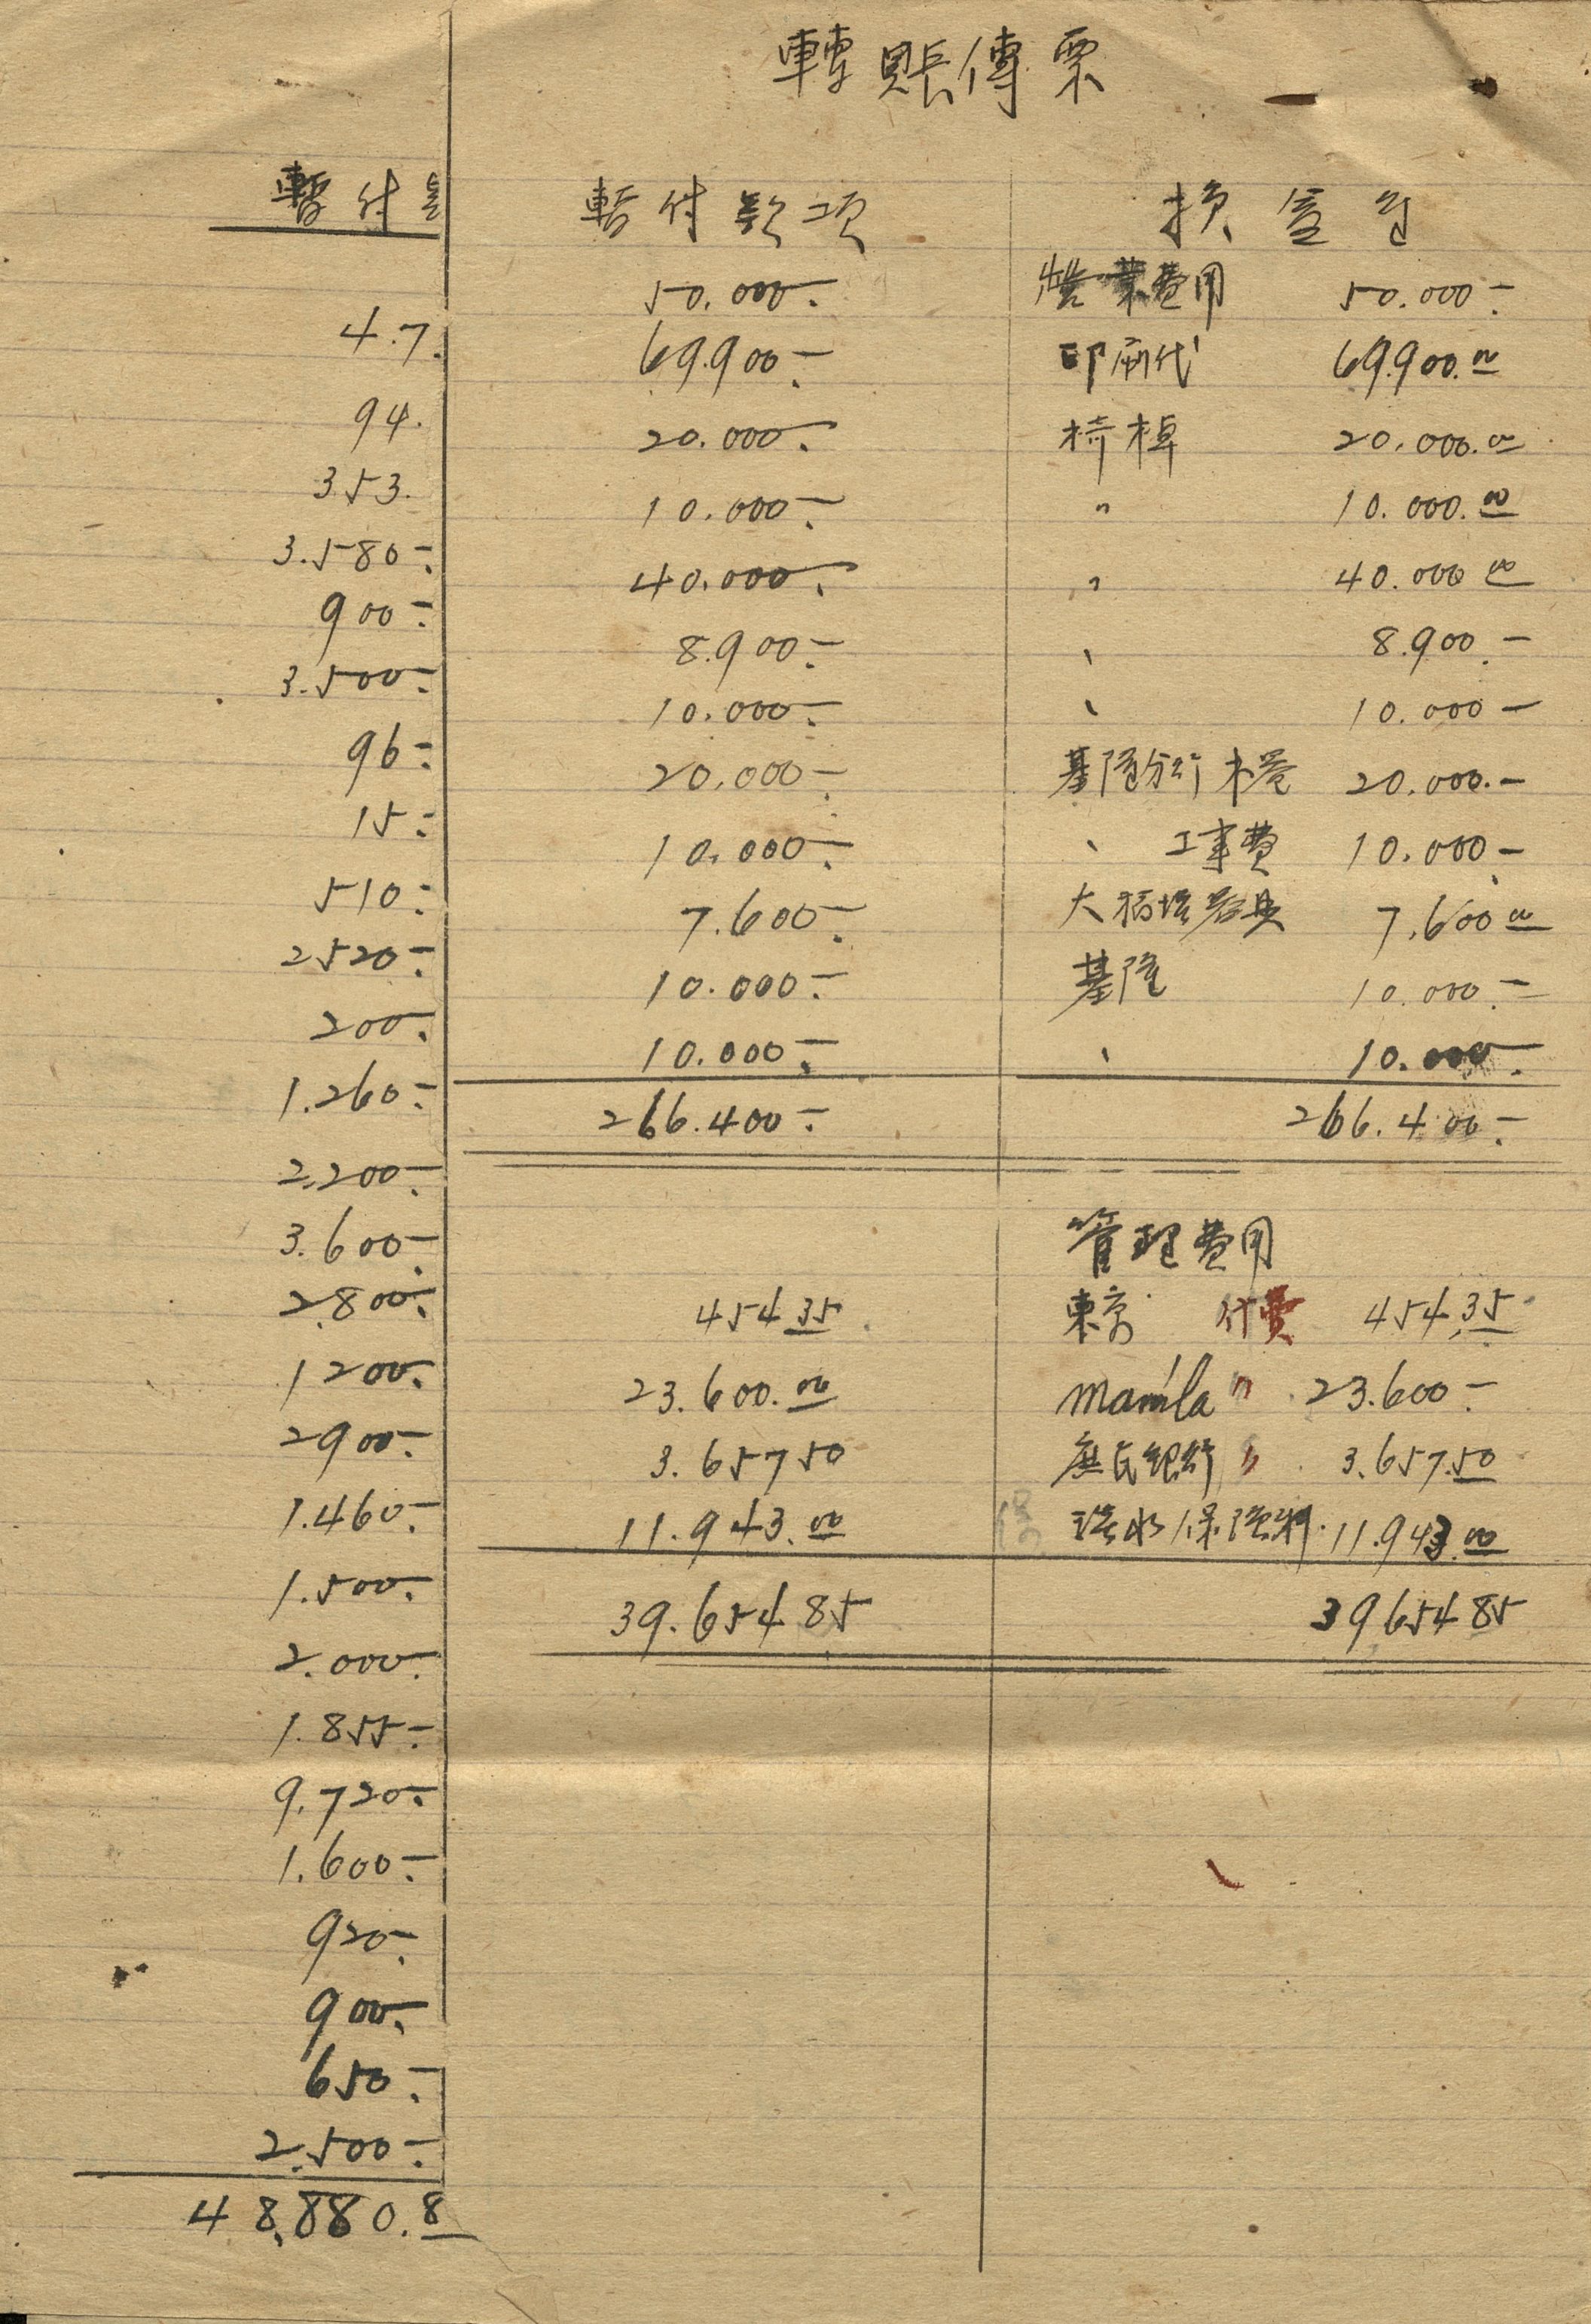 轉賬傳票
暫付
4.7.
94.
353.
3.580-
900-
3.500-
96-
15-
510-
2520-
200-
1.260-
2.200-
3.600-
2.800-
1200-
2900-
1.460-
1.500-
2.000-
1.855-
9.720-
1.600-
920-
900-
650-
2.500-
48.880.8
暫付款項 損益
50.000- 營業費用 50.000-
69.900- 印刷代 69.900.00
20.000- 椅棹 20.000.00
10.000- 〃 10.000.00
40.000- 〃 40.000 00
8.900- 、 8.900.-
10.000- 、 10.000-
20.000- 基隆分行木器 20.000.-
10.000- 、 工事費 10.000-
7.600- 大稻埕器具 7.600 00
10.000- 基隆 10.000.-
10.000- 、 10.000-
266.400- 266.400-
管理費用
454 35 東京 付費 454.35
23.600.00 Manila 〃 23.600-
3.657 50 庶民銀行 〃 3.657.50
11.943.00 保險料 11.943.00
39.654 85 39654 85